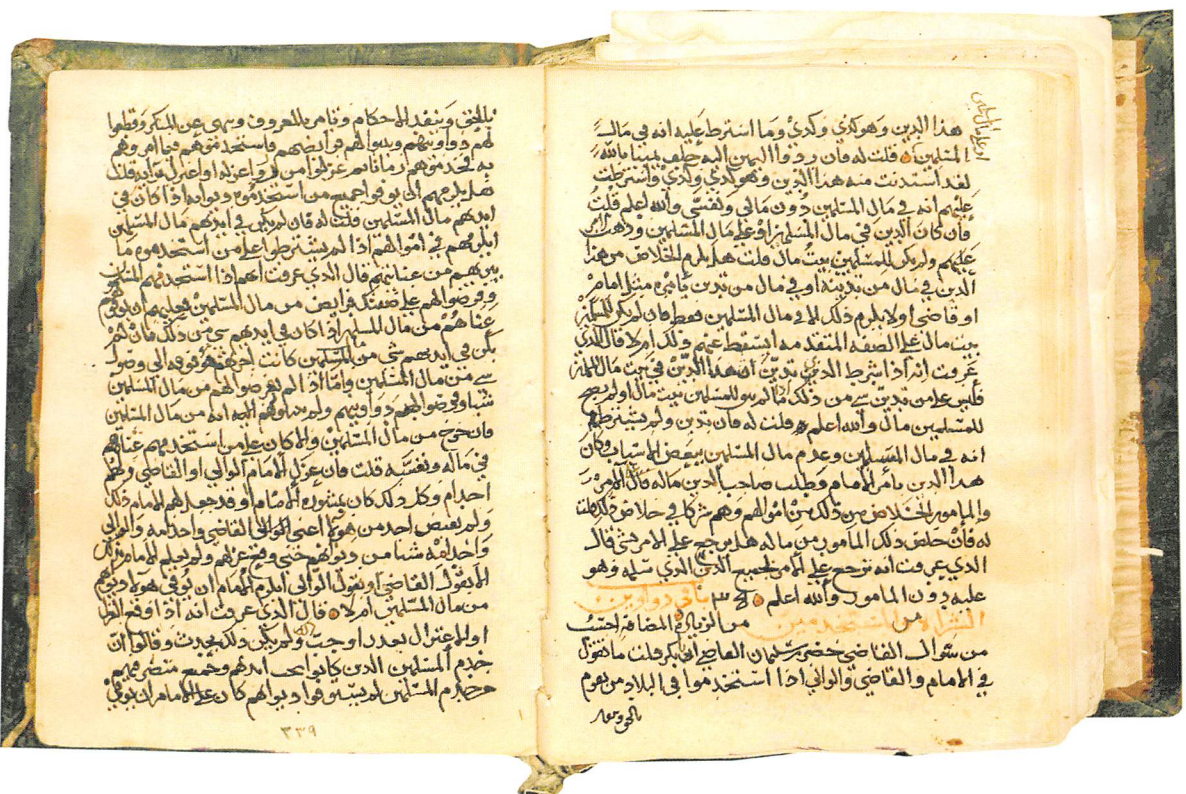 هذا الدين وهو كذي وكذي وما اشترط عليه انه في مال
المسلمين قلت له فان ردوا اليمين اليه حلف يمينا بالله
لقد استدنت منه هذا الدين وهو كذي وكذي واشترطت
عليهم انه في مال المسلمين دون مالي ونفسي والله اعلم قلت
فان كان الدين في مال المسلمين او على مال المسلمين وذهب
عليهم ولم يكن للمسلمين بيت مال قلت هل يلزم الخلاص من هذا
الدين في مال من تدينه او في مال من تدين بامره مثل امام
او قاضي او لا يلزم ذلك الا في مال المسلمين فقط فان لم يكن للمسلمين
بيت مال على الصفة المتقدمة ايسقط عنهم ذلك ام لا قال الذي
عرفت انه اذا اشترط الذي تدين ان هذا الدين في بيت مال المسلمين
فليس على من تدين شي من ذلك بيت مال او لم يصح
للمسلمين مال والله اعلم قلت له فان تدين ولم يشترط
انه في مال المسلمين وعدم مال المسلمين ببعض الاسباب وكان
هذا الدين بامر الامام وطلب صاحب الدين ماله قال الامر
والمامور الخلاص من ذلك من اموالهم وهم شركا في خلاص ذلك قلت
له فان خلص ذلك المامور من ماله هل يرجع على الامر بشي قال
الذي عرفت انه يرجع على الامر بجميع الدين الذي سلمه وهو
عليه دون المامور والله اعلم باقي دواوين
الشراة من المستخدمين من الزيادة المضافة
من سؤال القاضي سليمان القاضي ابي بكر قلت ما تقول
في الامام والقاضي والوالي اذا استخدموا في البلاد من يقوم
بالحق وينفذ
بالحق وينفذ الاحكام ويامر بالمعروف وينهى عن المنكر وقطعوا
لهم دواوينهم وبينوا لهم فرايضهم فاستخدموهم فيما امروهم
به فخدموهم زمانا ثم عزلوا من عزلوا عزله او اعتزل هو ايه قلت
هل يلزمهم ان يوفوا جميع من استخدموه ديوانه اذا كان في
ايديهم مال المسلمين قلت له فان لم يكن في ايديهم مال المسلمين
ايلزمهم في اموالهم اذا لم يشترطوا على من استخدموه ما
من عنائهم قال الذي عرفت انهم اذا استخدمهم المسلمون
وفرضوا لهم على فرايض من مال المسلمين فعليهم ان يوفوهم
عناهم من مال المسلمين اذا كان في ايديهم شي من ذلك فان لم
يكن في ايديهم شي من المسلمين كانت الى وصول
شي من مال المسلمين واما اذا لم يفرضوا لهم من مال المسلمين
شيا وفرضوا لهم دواوينهم ولم يبينوا لهم انه من مال المسلمين
فان خرج من مال المسلمين والا كان على من استخدمهم عناهم
في ماله ونفسه قلت فان عزل الامام الوالي او القاضي ولهم
احدام وكل ذلك كان بمشورة الامام او قد جعل لهم الامام ذلك
ولم يقبض احد من هولاء اعني الوالي القاضي واحدامه والوالي
واحدامه شيا من ديوانهم حتى وقع عزلهم ولم يعلم الامام بذلك
الا بقول القاضي او بقول الوالي ايلزم الامام ان يوفي هولاء ديوانهم
من مال المسلمين ام لا قال الذي عرفت انه اذا وقع العزل
او الاعتزال بعذر اوجب ذلك ولم يكن ذلك بحدث وقالوا ان
خدم المسلمين الذين كانوا تحت ايديهم وجميع منصرفهم
من خدام المسلمين لم يستوفوا ديوانهم كان على الامام ان يوفي
٣٣٩